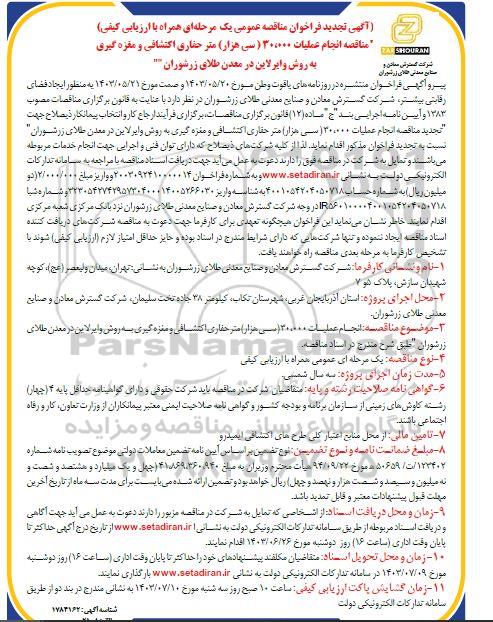 (آگهی تجدید فراخوان مناقصه عمومی یک مرحله‌ای همراه با ارزیابی کیفی)
"مناقصه انجام عملیات ۳۰،۰۰۰ ( سی هزار) متر حفاری اکتشافی و مغزه گیری
به روش وایرلاین در معدن طلای زرشوران ""
ZARSHOURAN
شرکت گسترش معادن و
صنایع معدنی طلای زرشوران
پیرو آگهی فراخوان منتشره در روزنامه‌های یاقوت وطن مورخ ۱۴۰۳/۰۵/۲۰ و صمت مورخ ۱۴۰۳/۰۵/۲۱ به منظور ایجاد فضای
رقابتی بیشتر، شرکت گسترش معادن و صنایع معدنی طلای زرشوران در نظر دارد با عنایت به قانون برگزاری مناقصات مصوب
۱۳۸۳ و آیین نامه اجرایی بند "ج" ماده (۱۲) قانون برگزاری مناقصات، برگزاری فرآیند ارجاع کار و انتخاب پیمانکار ذیصلاح جهت
"تجدید مناقصه انجام عملیات ۳۰،۰۰۰ (سی هزار) متر حفاری اکتشافی و مغزه گیری به روش وایرلاین در معدن طلای زرشوران"
نسبت به تجدید فراخوان مذکور اقدام نماید. لذا از کلیه شرکت‌های ذیصلاح که دارای توان فنی و اجرایی جهت انجام خدمات مربوطه
می‌باشند و تمایل به شرکت در مناقصه فوق را دارند دعوت به عمل می‌آید جهت دریافت اسناد مناقصه با مراجعه به سامانه تدارکات
الکترونیکی دولت به نشانی www.setadiran.ir و به شماره فراخوان ۲۰۰۳۰۹۲۴۱۰۰۰۰۰۱۴ و واریز مبلغ ۲/۰۰۰/۰۰۰ (دو
میلیون ریال) به شماره حساب ۴۰۰۱۰۵۴۲۰۴۰۵۰۷۱۸ به شناسه واریز و شماره شبا
در وجه شرکت گسترش معادن و صنایع معدنی طلای زرشوران نزد بانک مرکزی شعبه مرکزی
اقدام نمایند. خاطر نشان می‌نماید این فراخوان هیچگونه تعهدی برای کارفرما جهت دعوت به مناقصه شرکت‌های دریافت کننده
اسناد مناقصه ایجاد ننموده و تنها شرکت‌هایی که دارای شرایط مندرج در اسناد بوده و حایز حداقل امتیاز لازم (ارزیابی کیفی) شوند با
تشخیص کارفرما به مرحله بعدی مناقصه راه خواهند یافت.
۱-نام و نشانی کارفرما: شرکت گسترش معادن و صنایع معدنی طلای زرشوران به نشانی: تهران، میدان ولیعصر (عج)، کوچه
شهیدان سازش، پلاک ۵و ۷
۲-محل اجرای پروژه: استان آذربایجان غربی، شهرستان تکاب، کیلومتر ۳۸ جاده تخت سلیمان، شرکت گسترش معادن و صنایع
معدنی طلای زرشوران.
۳-موضوع مناقصه: انجام عملیات ۳۰،۰۰۰ (سی هزار) متر حفاری اکتشافی و مغزه گیری به روش وایرلاین در معدن طلای
زرشوران "طبق شرح مندرج در اسناد مناقصه.
۴-نوع مناقصه: یک مرحله ای عمومی همراه با ارزیابی کیفی
۵-مدت زمان اجرای پروژه: سه سال شمسی.
۶-گواهی نامه صلاحیت رشته و پایه: متقاضیان شرکت در مناقصه باید شرکت حقوقی و دارای گواهینامه حداقل پایه ۴ (چهار)
رشته کاوش‌های زمینی از سازمان برنامه و بودجه کشور و گواهی نامه صلاحیت ایمنی معتبر پیمانکاران از وزارت تعاون، کار و رفاه
اجتماعی باشند.
۷-تامین مالی: از محل منابع اعتبار کلی طرح های اکتشافی ایمیدرو
۸-مبلغ ضمانت نامه و نوع تضمین: نوع تضمین بر اساس آیین نامه تضمین معاملات دولتی موضوع تصویب نامه شماره
۱۲۳۴۰۲/ت/۵۰۶۵۹ ه مورخ ۹۴/۰۹/۲۲ هیأت محترم وزیران به مبلغ ۴۱،۸۶۹،۳۶۰،۹۴۰ (چهل و یک میلیارد و هشتصد و شصت و
نه میلیون و سیصد و شصت هزار و نهصد و چهل) ریال خواهد بود و تضمین ارائه شده می‌بایست برای مدت سه ماه از تاریخ آخرین
مهلت قبول پیشنهادات معتبر و قابل تمدید باشد.
۹-زمان و محل دریافت اسناد: از اشخاصی که تمایل به شرکت در مناقصه مزبور را دارند دعوت به عمل می آید جهت آگاهی
و دریافت اسناد مربوطه از طریق سامانه تدارکات الکترونیکی دولت به نشانی www.setadiran.ir از تاریخ درج آگهی حداکثر تا
پایان وقت اداری (ساعت ۱۶) روز دوشنبه مورخ ۱۴۰۳/۰۶/۲۶ اقدام نمایند.
۱۰-زمان و محل تحویل اسناد: متقاضیان مکلفند پیشنهادهای خود را حداکثر تا پایان وقت اداری (ساعت ۱۶) روز دوشنبه
مورخ ۱۴۰۳/۰۷/۰۹ در سامانه تدارکات الکترونیکی دولت به نشانی www.setadiran.ir بارگذاری نمایند.
۱۱-زمان گشایش پاکت ارزیابی کیفی: ساعت ۱۰ صبح روز سه شنبه مورخ ۱۴۰۳/۰۷/۱۰ به نشانی مندرج در بند دو از طریق
سامانه تدارکات الکترونیکی دولت
شناسه آگهی: ۱۷۸۴۱۶۲